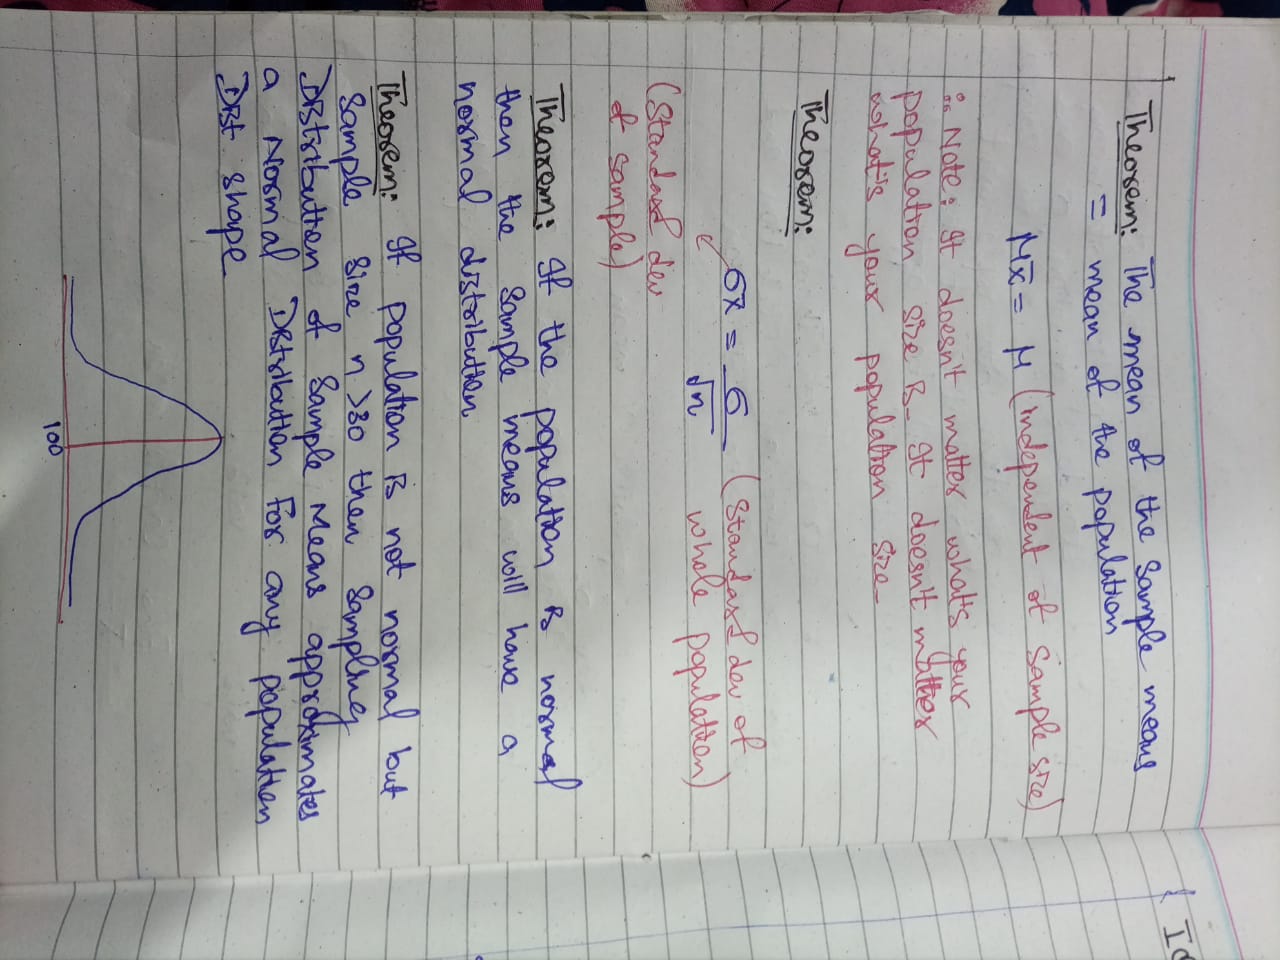 Theorem: The mean of the sample means
= mean of the population
μx̄ = μ (independent of sample size)
Note: It doesn't matter what's your
population size is. It doesn't matter
what's your population size.
Theorem:
σx̄ = σ/√n (Standard dev of
whole population)
(Standard dev
of sample)
Theorem: If the population is normal
then the sample means will have a
normal distribution
Theorem: If population is not normal but
sample size n >30 then sampling
Distribution of Sample Means approximates
a Normal Distribution For any population
Dist shape
100